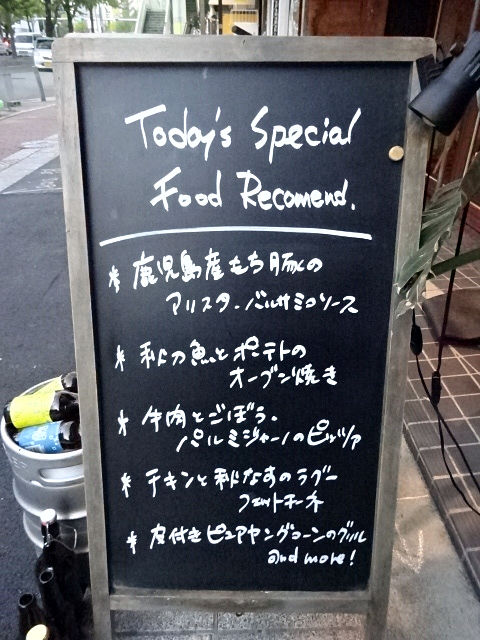 Today's Special
Food Recomend.
* 鹿児島産もち豚の
アリスタ・バルサミコソース
* 秋刀魚とポテトの
オーブン焼き
* 牛肉とごぼう。
パルミジャーノのピッツァ
* チキンと秋なすのラグー
フェットチーネ
* 皮付きピュアヤングコーンのグリル
and more!